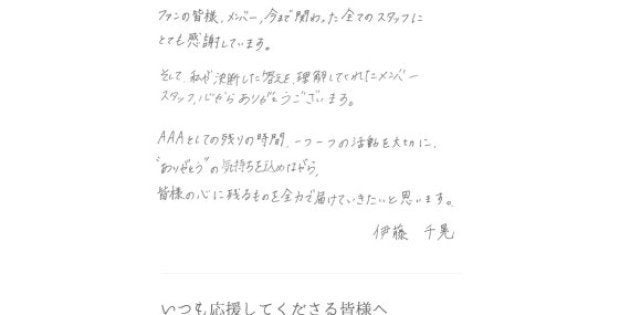 ファンの皆様、メンバー、今まで関わった全てのスタッフに
とても感謝しています。
そして、私が決断した答えを、理解してくれたメンバー
スタッフ、心からありがとうございます。
AAAとしての残りの時間、一つ一つの活動を大切に、
"ありがとう"の気持ちを込めながら、
皆様の心に残るものを全力で届けていきたいと思います。
伊藤 千晃
いつも応援してくださる皆様へ